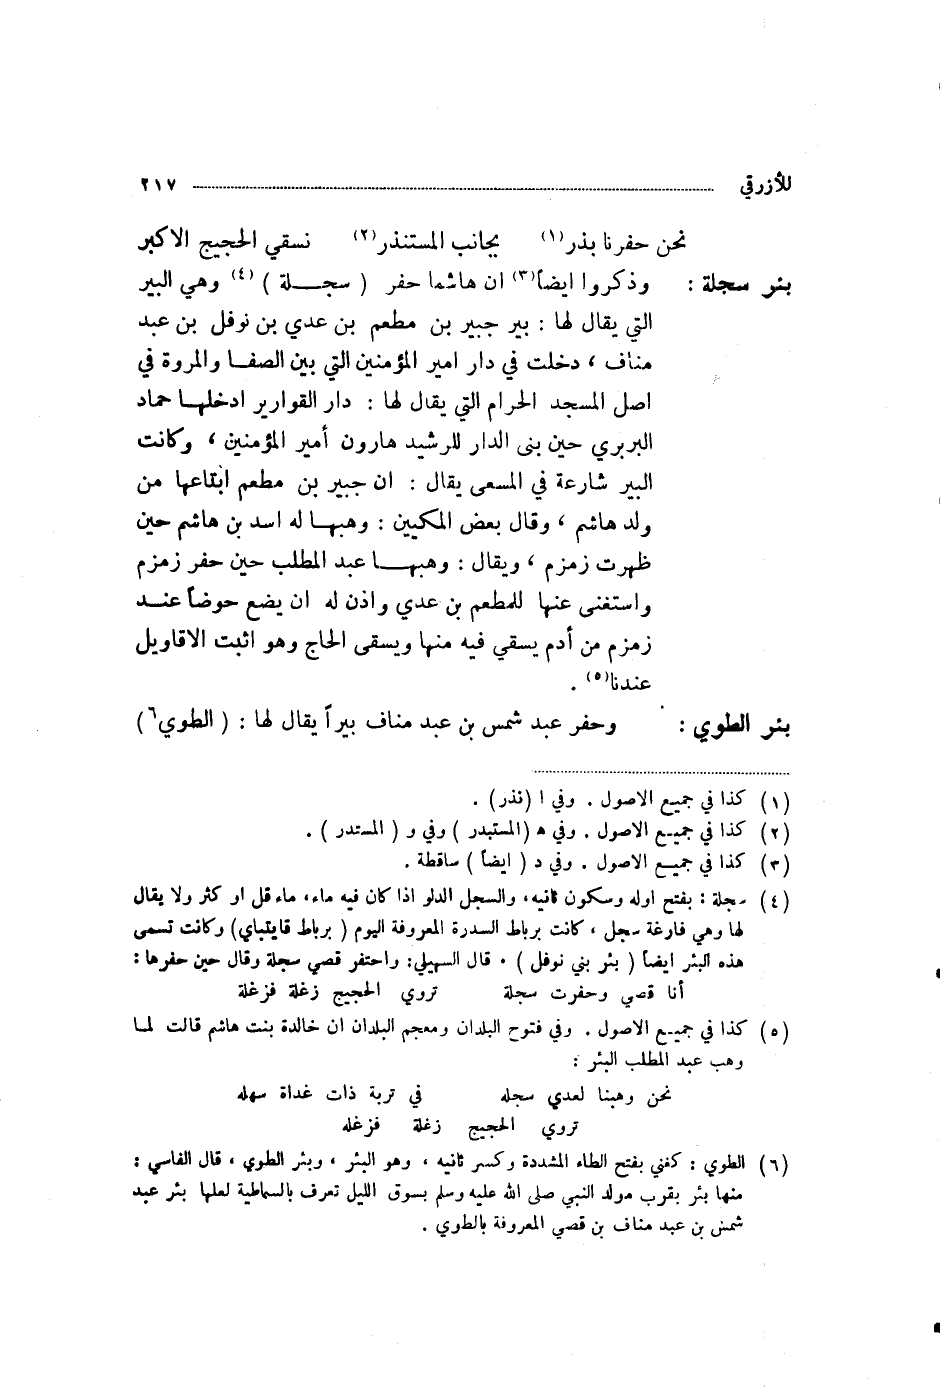 للأزرقي ٢١٧
نحن حفرنا بذر(١) بجانب المستنذر(٢) نسقي الحجيج الاكبر
بئر سجلة : وذكروا ايضاً(٣) ان هاشما حفر ( سجلة ) (٤) وهي البير
التي يقال لها : بير جبير بن مطعم بن عدي بن نوفل بن عبد
مناف ، دخلت في دار امير المؤمنين التي بين الصفا والمروة في
اصل المسجد الحرام التي يقال لها : دار القوارير ادخلها حماد
البربري حين بنى الدار للرشيد هارون أمير المؤمنين ، وكانت
البير شارعة في المسعى يقال : ان جبير بن مطعم ابتاعها من
ولد هاشم ، وقال بعض المكيين : وهبها له اسد بن هاشم حين
ظهرت زمزم ، ويقال : وهبها عبد المطلب حين حفر زمزم
واستغنى عنها للمطعم بن عدي واذن له ان يضع حوضاً عند
زمزم من أدم يسقي فيه منها ويسقى الحاج وهو اثبت الاقاويل
عندنا(٥) .
بئر الطوي : وحفر عبد شمس بن عبد مناف بيراً يقال لها : ( الطوي٦)
(١) كذا في جميع الاصول . وفي ا (نذر) .
(٢) كذا في جميع الاصول . وفي ه (المستبدر ) وفي و ( المستدر ) .
(٣) كذا في جميع الاصول . وفي د ( ايضاً ) ساقطة .
(٤) سجلة : بفتح اوله وسكون ثانيه، والسجل الدلو اذا كان فيه ماء، ماء قل او كثر ولا يقال
لها وهي فارغة سجل ، كانت برباط السدرة المعروفة اليوم ( برباط قايتباي) وكانت تسمى
هذه البئر ايضاً ( بئر بني نوفل ) . قال السهيلي: واحتفر قصي سجلة وقال حين حفرها :
أنا قصي وحفرت سجلة تروي الحجيج زغلة فزغلة
(٥) كذا في جميع الاصول . وفي فتوح البلدان ومعجم البلدان ان خالدة بنت هاشم قالت لما
وهب عبد المطلب البئر :
نحن وهبنا لعدي سجله في تربة ذات غداة سهله
تروي الحجيج زغلة فزغله
(٦) الطوي : كغني بفتح الطاء المشددة وكسر ثانيه ، وهو البئر ، وبئر الطوي ، قال الفاسي :
منها بئر بقرب مولد النبي صلى الله عليه وسلم بسوق الليل تعرف بالسماطية لعلها بئر عبد
شمس بن عبد مناف بن قصي المعروفة بالطوي .